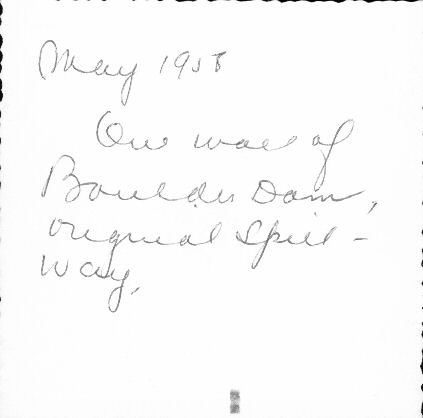 May 1958
One wall of
Boulder Dam,
original Spill-
way.